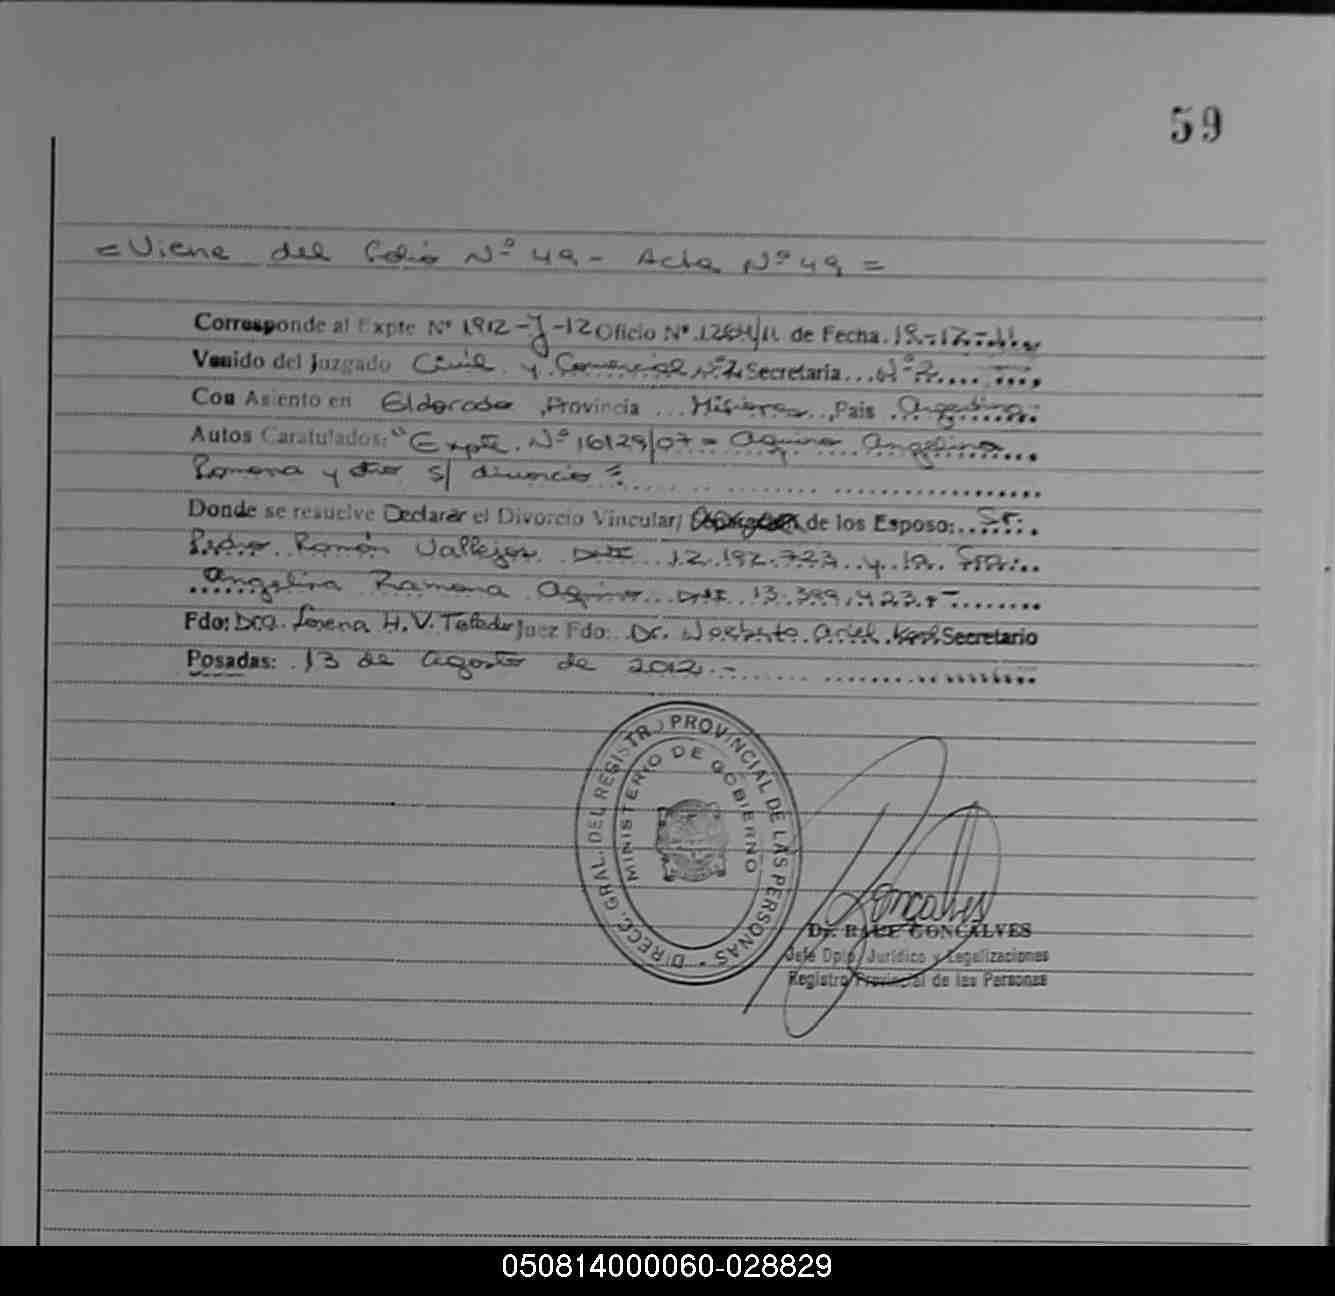 59
= Viene del Folio Nº 49 - Acta Nº 49 =
Corresponde al Expte Nº 1912-J-12 Oficio Nº 1284/11 de Fecha 19-12-11
Venido del Juzgado Civil y Comercial Nº 2 Secretaria Nº 2
Con Asiento en Eldorado, Provincia Misiones, Pais Argentina
Autos Caratulados: "Expte. Nº 16129/07 = Aquino Angelina
Ramona y otro s/ divorcio"
Donde se resuelve Declarar el Divorcio Vincular/ de los Esposo: Sr.
Pedro Ramón Vallejos DNI 12.192.723 y la Sra.
Angelina Ramona Aquino DNI 13.399.423.-
Fdo: Dra. Lorena H. V. Toledo Juez Fdo: Dr. Norberto Ariel Secretario
Posadas: 13 de agosto de 2012.-
DIRECC. GRAL. DEL REGISTRO PROVINCIAL DE LAS PERSONAS
MINISTERIO DE GOBIERNO
Goncalves
Dr. RAUL GONCALVES
Jefe Dpto. Jurídico y Legalizaciones
Registro Provincial de las Personas
050814000060-028829